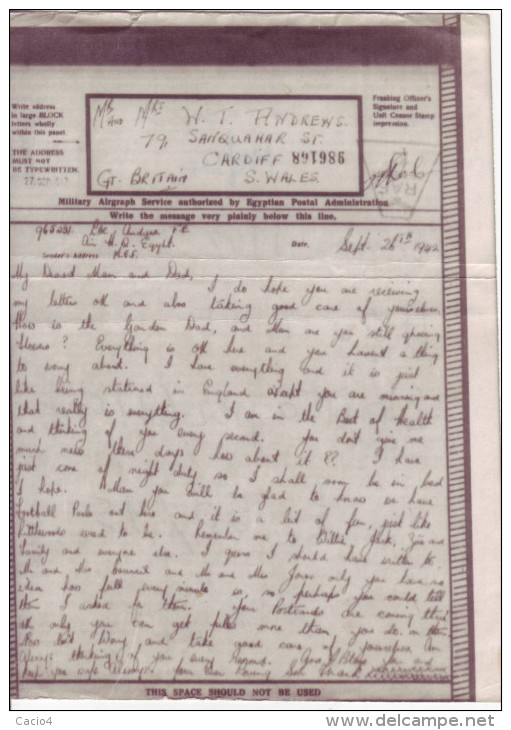 Write address
in large BLOCK
letters wholly
within this panel.
THE ADDRESS
MUST NOT
BE TYPEWRITTEN.
Mr AND Mrs W. T. ANDREWS.
79, SANQUAHAR ST.
CARDIFF 986168
GT. BRITAIN S. WALES.
Franking Officer's
Signature and
Unit Censor Stamp
impression.
Military Airgraph Service authorized by Egyptian Postal Administration
Write the message very plainly below this line.
Air H.Q. Egypt.
Sender's Address M.E.F.
Date. Sept. 26th 1942
My Dearest Mam and Dad,
I do hope you are receiving
my letters ok and also taking good care of yourselves.
How is the Garden Dad, and Mam are you still
? Everything is ok here and you haven't a thing
to worry about. I have everything and it is just
like being stationed in England except you are missing and
that really is everything. I am in the Best of Health
and thinking of you every second. You don't give me
much news these days how about it ?? I have
just come of night duty so I shall soon be in bed
I hope. Mam you will be glad to know we have
Football Pools out here and it is a bit of fun, just like
Littlewoods used to be. Remember me to Willie, and
family and everyone else. I guess I should have written to
Mr and Mrs and Mr and Mrs Jones only you have no
idea how full every minute is, so perhaps you could tell
them I asked for them. Your Postcards are coming thro'
ok only you can get more than you do on them.
Also don't Worry and take good care of yourselves Am
Always thinking of you every moment. God Bless you and
keep you safe always. Your Ever Loving Son
THIS SPACE SHOULD NOT BE USED
Cacio4
www.delcampe.net